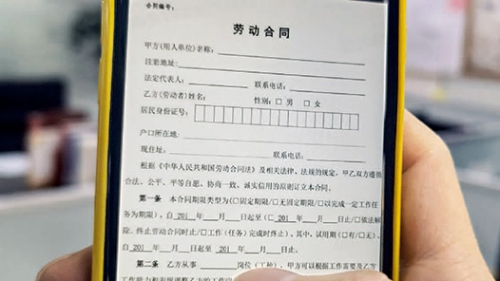 合同编号：
劳动合同
甲方(用人单位)名称：
注册地址：
法定代表人： 联系电话：
乙方(劳动者)姓名： 性别：□男 □女
居民身份证号：
户口所在地：
现住址： 联系电话：
根据《中华人民共和国劳动合同法》及相关法律、法规的规定，甲乙双方遵循
合法、公平、平等自愿、协商一致、诚实信用的原则订立本合同。
第一条 本合同期限类型为(□固定期限/□无固定期限/□以完成一定工作任
务为期限)，自201__年__月__日起至(□201__年__月__日止/□依法解
除、终止劳动合同时止/□工作(任务)完成时终止)。其中，试用期(□有/□无)，
自201__年__月__日起至201__年__月__日止。
第二条 乙方从事____岗位(工种)。甲方可以根据工作需要及乙方